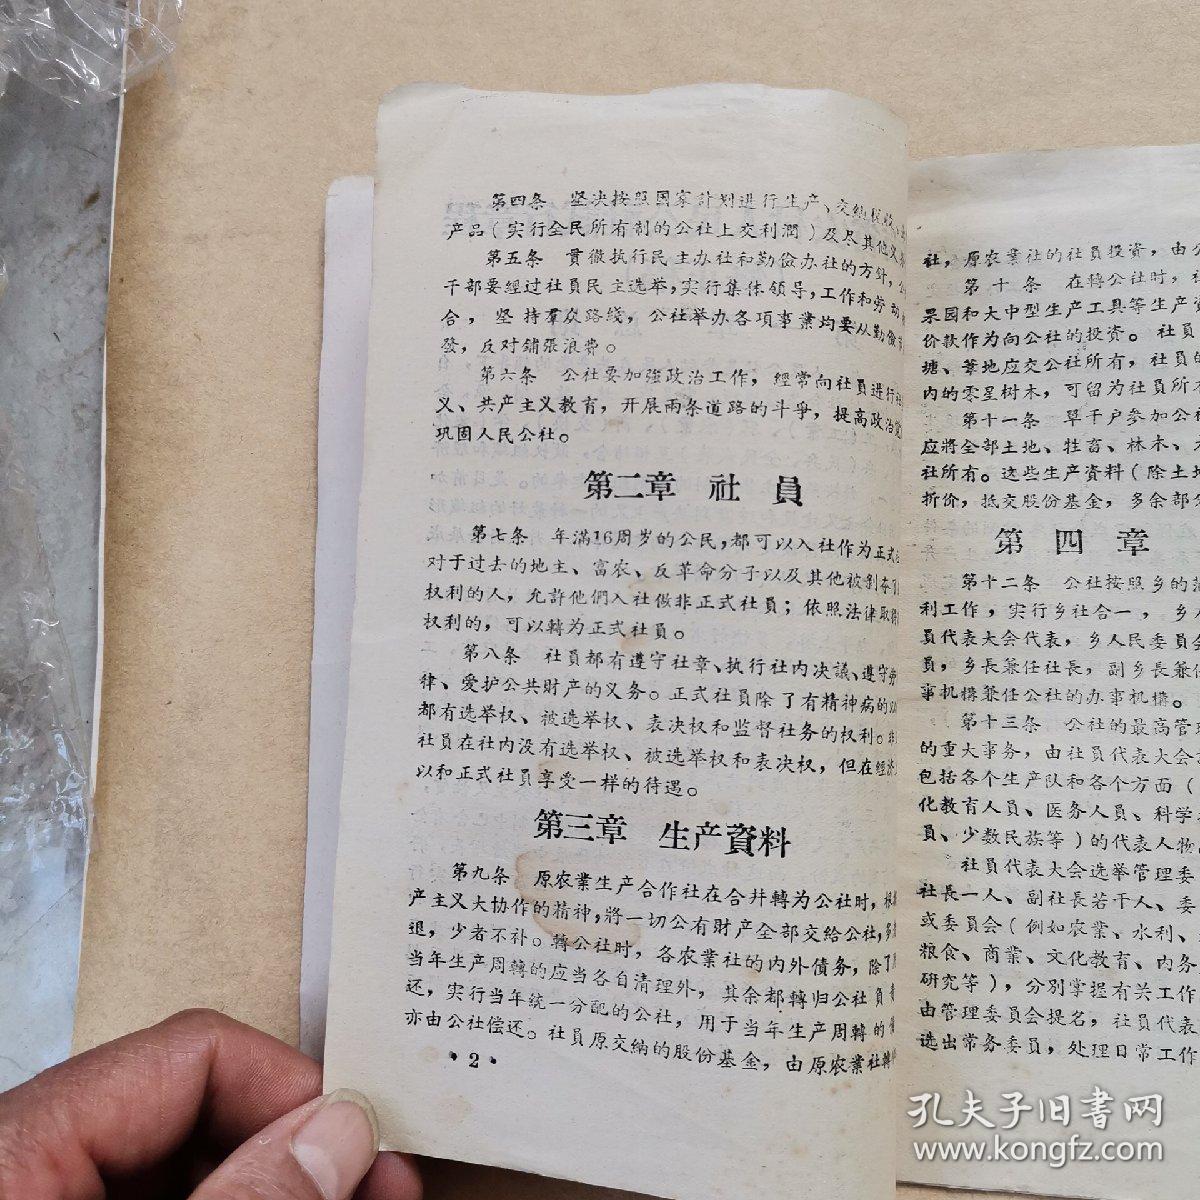 第四条　坚决按照国家計划进行生产、交納
产品（实行全民所有制的公社上交利潤）及尽其他义
第五条　貫徹执行民主办社和勤儉办社的方針，
干部要經过社員民主选举，实行集体領导，工作和劳动
合，坚持羣众路綫，公社举办各項事業均要从勤儉
發，反对鋪張浪費。
第六条　公社要加強政治工作，經常向社員进行
义、共产主义教育，开展兩条道路的斗爭，提高政治
巩固人民公社。
第二章　社員
第七条　年滿16周岁的公民，都可以入社作为正式
对于过去的地主、富农、反革命分子以及其他被剝夺
权利的人，允許他們入社做非正式社員；依照法律取得
权利的，可以轉为正式社員。
第八条　社員都有遵守社章、执行社內决議、遵守劳
律、爱护公共財产的义务。正式社員除了有精神病的以
都有选举权、被选举权、表决权和监督社务的权利。非
社員在社內没有选举权、被选举权和表决权，但在經济
以和正式社員享受一样的待遇。
第三章　生产資料
第九条　原农業生产合作社在合并轉为公社时，根
产主义大协作的精神，將一切公有財产全部交給公社，多
退，少者不补。轉公社时，各农業社的内外債务，除了
当年生产周轉的应当各自清理外，其余都轉归公社負
还，实行当年統一分配的公社，用于当年生产周轉的
亦由公社偿还。社員原交納的股份基金，由原农業社轉
·2·
社，原农業社的社員投資，由公
第十条　在轉公社时，社
果园和大中型生产工具等生产資
价款作为向公社的投資。社員
塘、葦地应交公社所有，社員的
内的零星树木，可留为社員所
第十一条　单干户参加公社
应將全部土地、牲畜、林木、大
社所有。这些生产資料（除土地
折价，抵交股份基金，多余部分
第四章
第十二条　公社按照乡的
利工作，实行乡社合一，乡人
員代表大会代表，乡人民委員会
員，乡長兼任社長，副乡長兼任
事机構兼任公社的办事机構。
第十三条　公社的最高管理
的重大事务，由社員代表大会
包括各个生产队和各个方面（
化教育人員、医务人員、科学
員、少数民族等）的代表人物
社員代表大会选举管理委
社長一人、副社長若干人、委
或委員会（例如农業、水利、
粮食、商業、文化教育、内务
研究等），分別掌握有关工作
由管理委員会提名，社員代表
选出常务委員，处理日常工作
孔夫子旧書网
www.kongfz.com